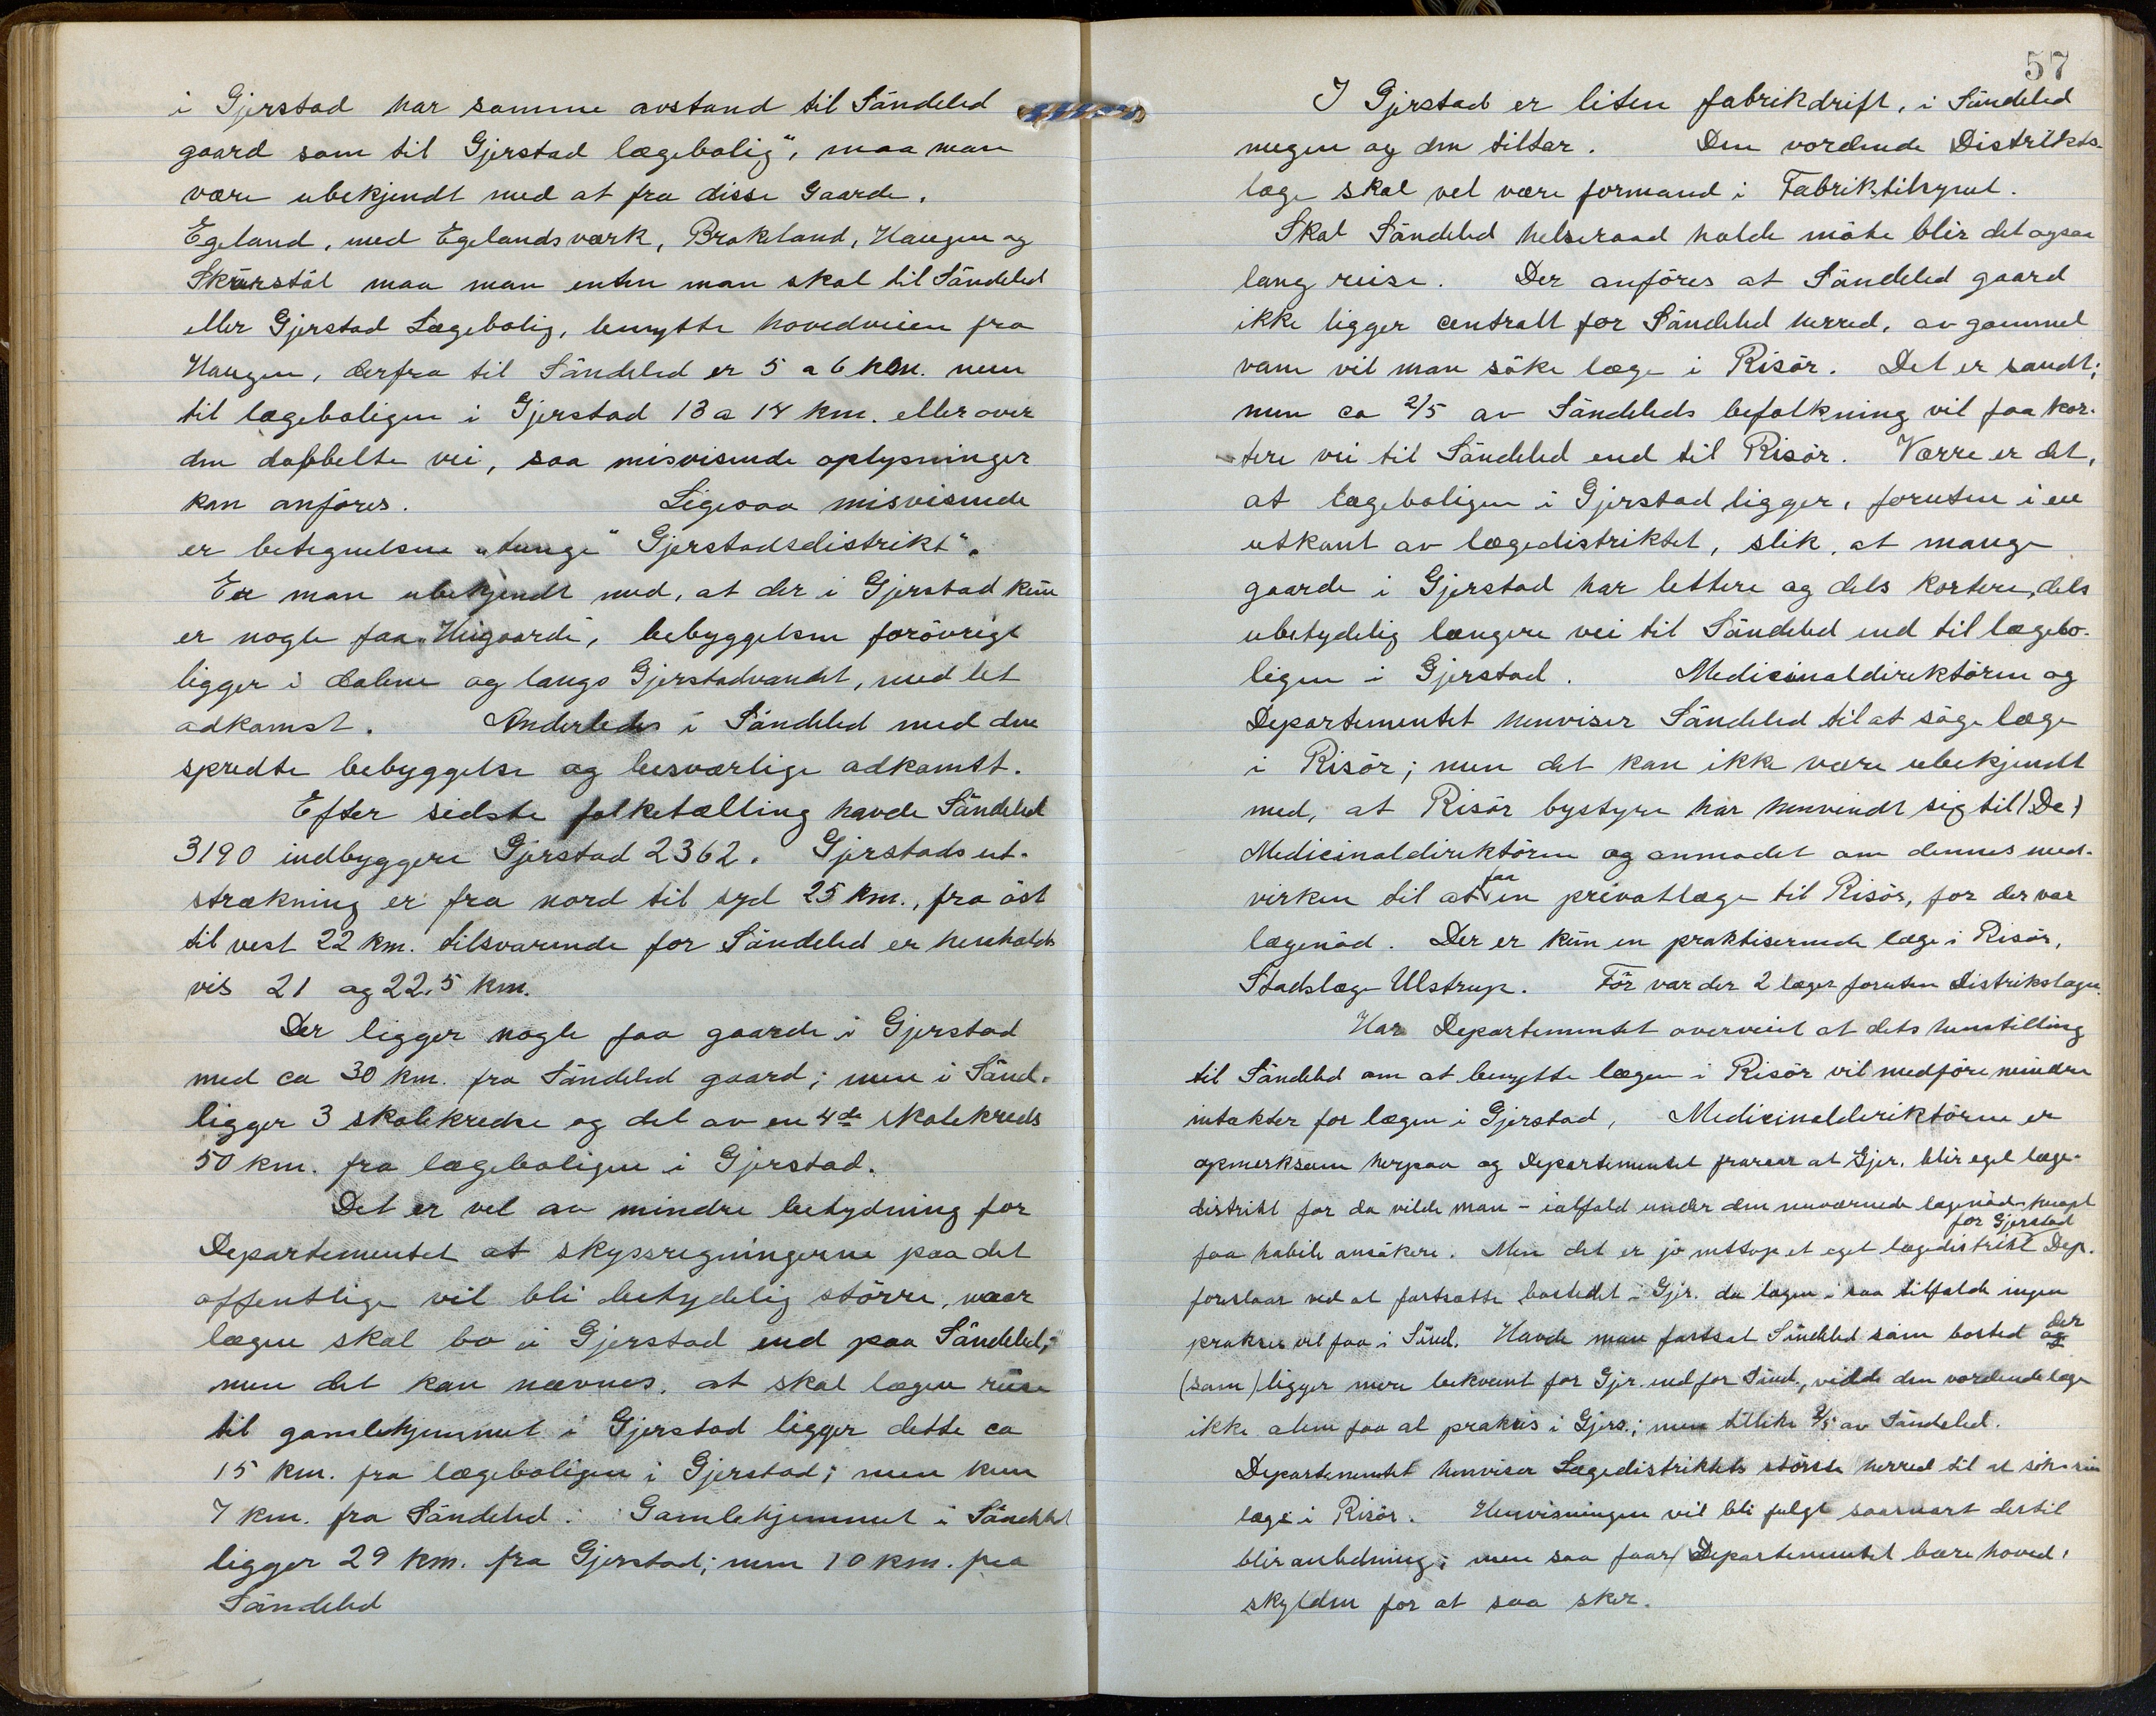 i Gjerstad har samme avstand til Söndeled
gaard som til Gjerstad lægebolig", maa man
være ubekjendt med at fra disse Gaarde.
Egeland, med Egelandsværk, Brokeland, Haugen og
Skårstöl maa man enten man skal til Söndeled
eller Gjerstad Lægebolig, benytte hovedveien fra
Haugen, derfra til Söndeled er 5 a 6 km. men
til lægeboligen i Gjerstad 13 a 14 km. eller over
den dobbelte vei, saa misvisende oplysninger
kan anföres. Ligesaa misvisende
er betegnelsen "tunge" Gjerstadsdistrikt".
Er man ubekjendt med, at der i Gjerstad kun
er nogle faa "Heigaarde", bebyggelsen forövrigt
ligger i dalene og langs Gjerstadvandet, med let
adkomst. Anderledes i Söndeled med den
spredte bebyggelse og besværlige adkomst.
Efter sidste folketælling havde Söndeled
3190 indbyggere Gjerstad 2362. Gjerstads ut-
strækning er fra nord til syd 25 km., fra öst
til vest 22 km. tilsvarende for Söndeled er henholds
vis 21 og 22,5 km.
Der ligger nogle faa gaarde i Gjerstad
med ca 30 km. fra Söndeled gaard; men i Sönd.
ligger 3 skolekredse og del av en 4de skolekreds
50 km. fra lægeboligen i Gjerstad.
Det er vel av mindre betydning for
Departementet at skyssregningerne paa det
offentlige vil bli betydelig större, naar
lægen skal bo i Gjerstad end paa Söndeled;
men det kan nævnes, at skal lægen reise
til gamlehjemmet i Gjerstad ligger dette ca
15 km. fra lægeboligen i Gjerstad; men kun
7 km. fra Söndeled. Gamlehjemmet i Söndeled
ligger 29 km. fra Gjerstad; men 10 km. fra
Söndeled
57
I Gjerstad er liten fabrikdrift, i Söndeled
megen og den tiltar. Den vordende Distrikts-
læge skal vel være formand i Fabriktilsynet.
Skal Söndeled helseraad holde möte blir det ogsaa
lang reise. Der anföres at Söndeled gaard
ikke ligger centralt for Söndeled herred, av gammel
vane vil man söke læge i Risör. Det er sandt;
men ca 2/5 av Söndeleds befolkning vil faa kor-
tere vei til Söndeled end til Risör. Værre er det,
at lægeboligen i Gjerstad ligger, foruten i en
utkant av lægedistriktet, slik, at mange
gaarde i Gjerstad har lettere og dels kortere, dels
ubetydelig længere vei til Söndeled end til lægebo-
ligen i Gjerstad. Medicinaldirektören og
Departementet henviser Söndeled til at söge læge
i Risör; men det kan ikke være ubekjendt
med, at Risör bystyre har henvendt sig til (De)
Medicinaldirektören og anmodet om dennes med-
virken til at faa en privatlæge til Risör, for der var
lægenöd. Der er kun en praktiserende læge i Risör,
Stadslæge Ulstrup. För var der 2 læger foruten Distrikslægen.
Har Departementet overveiet at dets henstilling
til Söndeled om at benytte lægen i Risör vil medföre mindre
intækter for lægen i Gjerstad, Medicinalderiktören er
opmerksom herpaa og Departementet fraraar at Gjer. blir eget læge-
distrikt for da vilde man - ialfald under den nuværende lægenöd - neppe
faa habile ansökere. Men det er jo netop et eget lægedistrikt for Gjerstad Dep.
foreslaar ved at fastsætte bostedet i Gjr. da lægen i saa tilfælde ingen
praksis vil faa i Sönd. Havde man fastsat Söndeled som bosted og der
(som) ligger mere bekvemt for Gjr. end for Sönd., vilde den vordende læge
ikke alene faa al praksis i Gjers.; men tillike 2/5 av Söndeled.
Departementet henviser Lægedistriktets störste herred til at söke sin
læge i Risör. Henvisningen vil bli fulgt saasnart dertil
blir anledning; men saa faar Departementet bære hoved-
skylden for at saa sker.